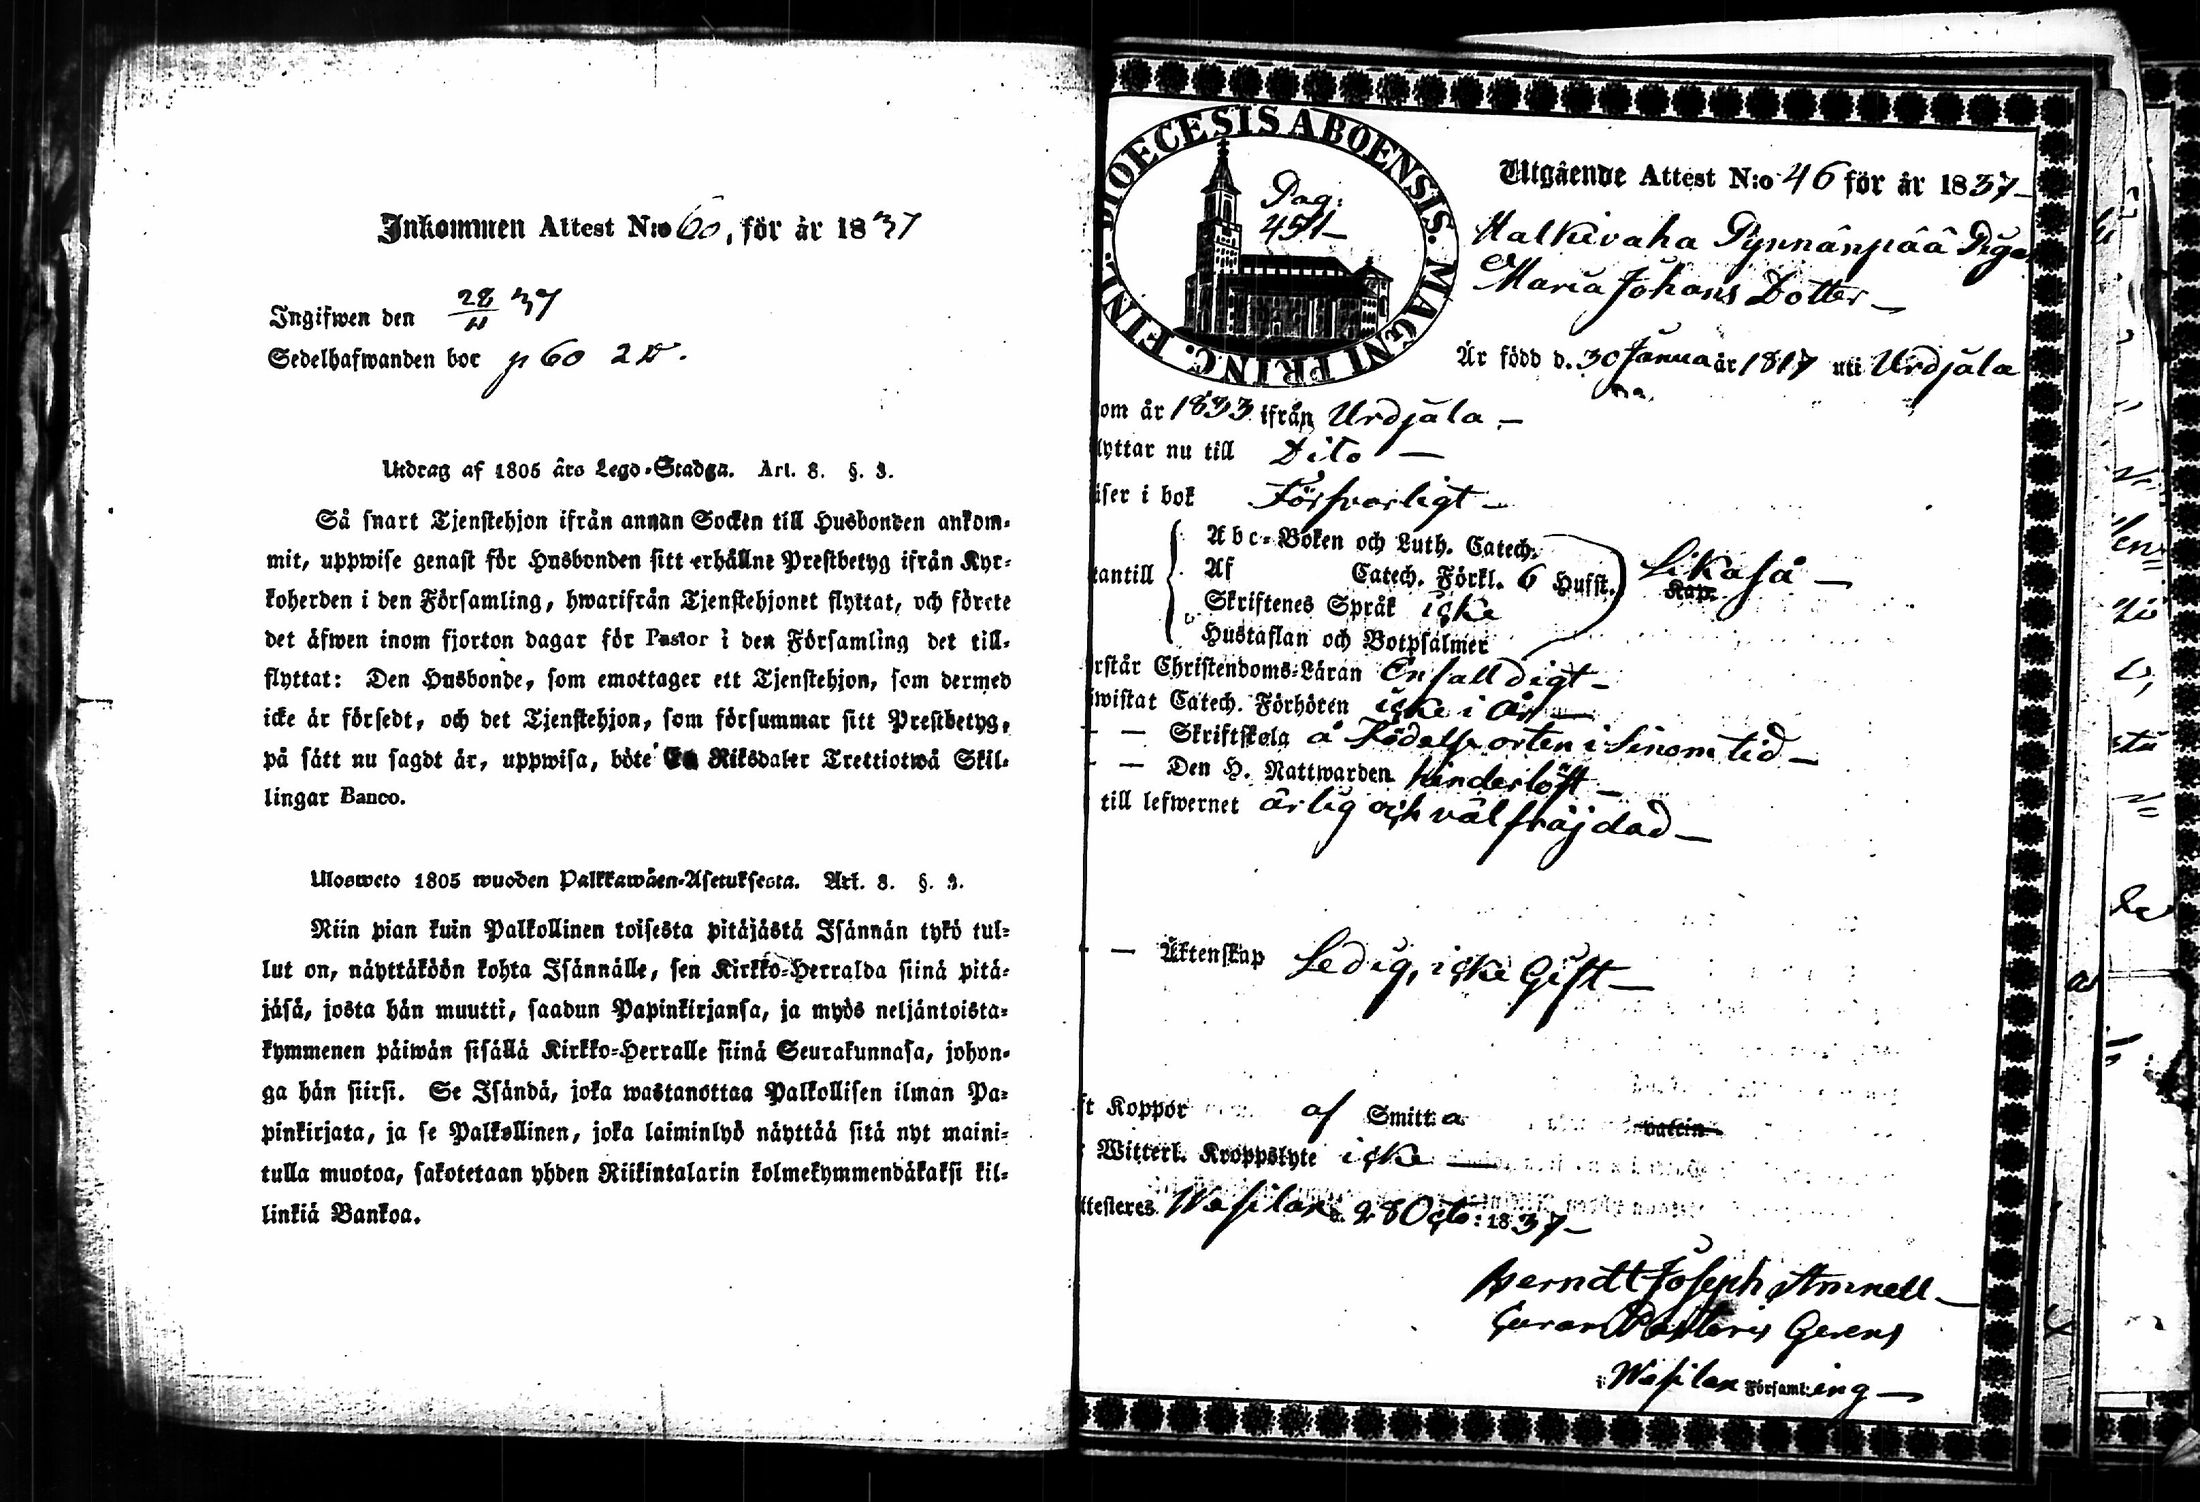 Inkommen Attest N:o 60, för år 1837
Ingifwen den 28/11 37
Sedelhafwanden bor p 60 2 D.
Utdrag af 1805 års Lego-Stadga. Art. 8. §. 3.
Så snart Tjenstehjon ifrån annan Socken till Husbonden ankom-
mit, uppwise genast för Husbonden sitt erhållne Prestbetyg ifrån Kyr-
koherden i den Församling, hwarifrån Tjenstehjonet flyttat, och förete
det äfwen inom fjorton dagar för Pastor i den Församling det till-
flyttat: Den Husbonde, som emottager ett Tjenstehjon, som dermed
icke är försedt, och det Tjenstehjon, som försummar sitt Prestbetyg,
på sått nu sagdt är, uppwisa, böte En Riksdaler Trettiotwå Skil-
lingar Banco.
Ulosweto 1805 wuoden Palkkawäen-Asetuksesta. Art. 8. §. 3.
Niin pian kuin Palkollinen toisesta pitäjästä Isännän tykö tul-
lut on, näyttäköön kohta Isännälle, sen Kirkko-Herralda siinä pitä-
jäsä, josta hän muutti, saadun Papinkirjansa, ja myös neljäntoista-
kymmenen päiwän sisällä Kirkko-Herralle siinä Seurakunnasa, johon-
ga hän siirsi. Se Isändä, joka wastanottaa Palkollisen ilman Pa-
pinkirjata, ja se Palkollinen, joka laiminlyö näyttää sitä nyt maini-
tulla muotoa, sakotetaan yhden Riikintalarin kolmekymmendäkaksi kil-
linkiä Bankoa.
DIOECESIS ABOENSIS. MAGNI PRINC. FINL.
Pag:
451
Utgående Attest N:o 46 för år 1837
Halkivaha Pynnänpää Piga
Maria Johans Dotter
År född d. 30 Januaår 1817 uti Urdjala
om år 1833 ifrån Urdjala
lyttar nu till Dito
äser i bok Försvarligt
Abc-Boken och Luth. Catech.
tantill Af Catech. Förkl. 6 Hufst. Likaså
Kap.
Skriftenes Språk icke
Hustaflan och Botpsalmer
rstår Christendoms-Läran Enfalldigt
wistat Catech. Förhören icke i År
Skriftskola å Födelse orten i sinom tid
Den H. Nattwarden hinderlöst
till lefwernet ärlig och väl fräjdad
Äktenskap Ledig, icke Gift
ft Koppor af Smitta
vaccin
Witterl. Kroppslyte icke
ttesteres Wesilax d. 28 Octo: 1837
Berndt Joseph Amnell
Curam Pastoris Gerens
i Wesilax Församl:ing